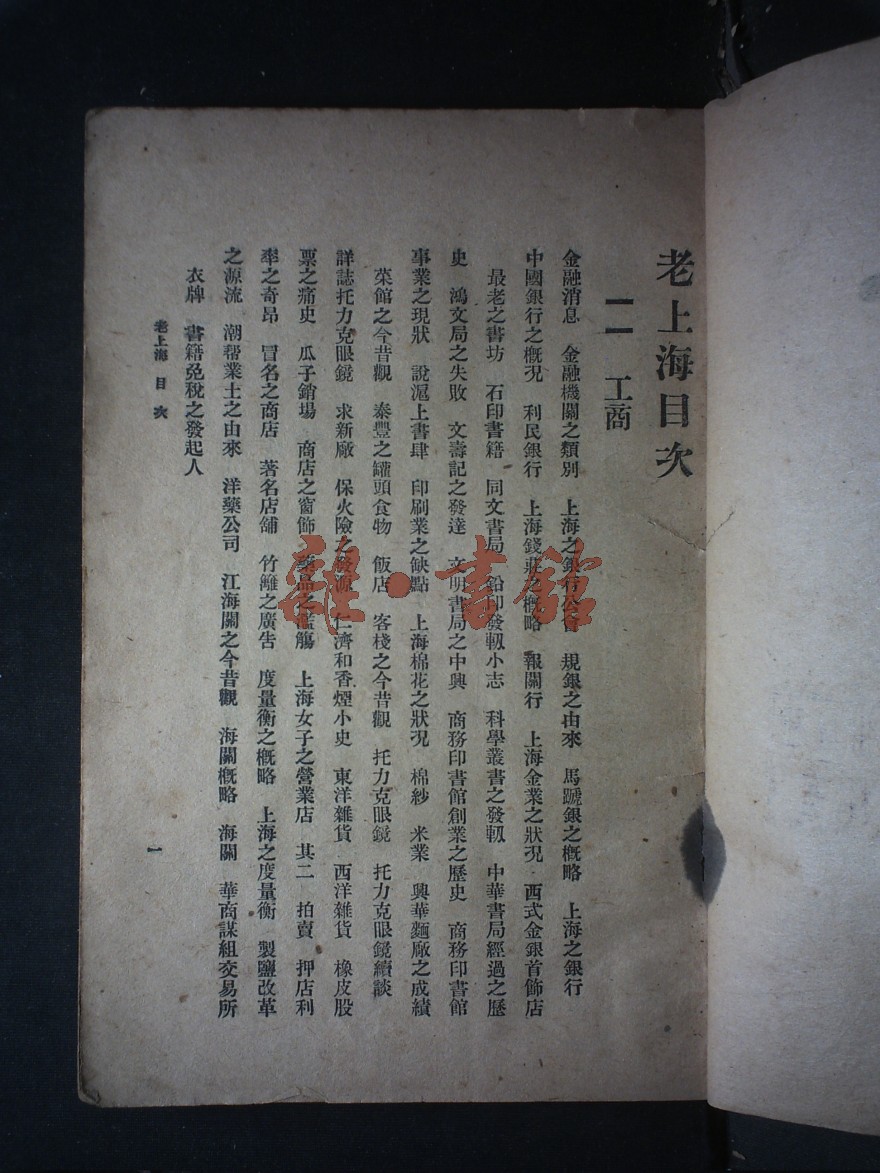 老上海目次
二　工商
金融消息　金融機關之類別　上海之銀行公會　規銀之由來　馬蹏銀之概略　上海之銀行
中國銀行之概况　利民銀行　上海錢莊之概略　報關行　上海金業之狀况　西式金銀首飾店
最老之書坊　石印書籍　同文書局　鉛印發軔小志　科學叢書之發軔　中華書局經過之歷
史　鴻文局之失敗　文壽記之發達　文明書局之中興　商務印書館創業之歷史　商務印書館
事業之現狀　說滬上書肆　印刷業之缺點　上海棉花之狀况　棉紗　米業　興華麵廠之成績
菜館之今昔觀　泰豐之罐頭食物　飯店　客棧之今昔觀　托力克眼鏡　托力克眼鏡續談
詳誌托力克眼鏡　求新廠　保火險之發源　仁濟和香煙小史　東洋雜貨　西洋雜貨　橡皮股
票之痛史　瓜子銷場　商店之窗飾　藥品之濫觴　上海女子之營業店　其二　拍賣　押店利
率之奇昂　冒名之商店　著名店舖　竹籬之廣告　度量衡之概略　上海之度量衡　製鹽改革
之源流　潮帮業土之由來　洋藥公司　江海關之今昔觀　海關概略　海關　華商謀組交易所
衣牌　書籍免稅之發起人
老上海　目次
一
雜·書館